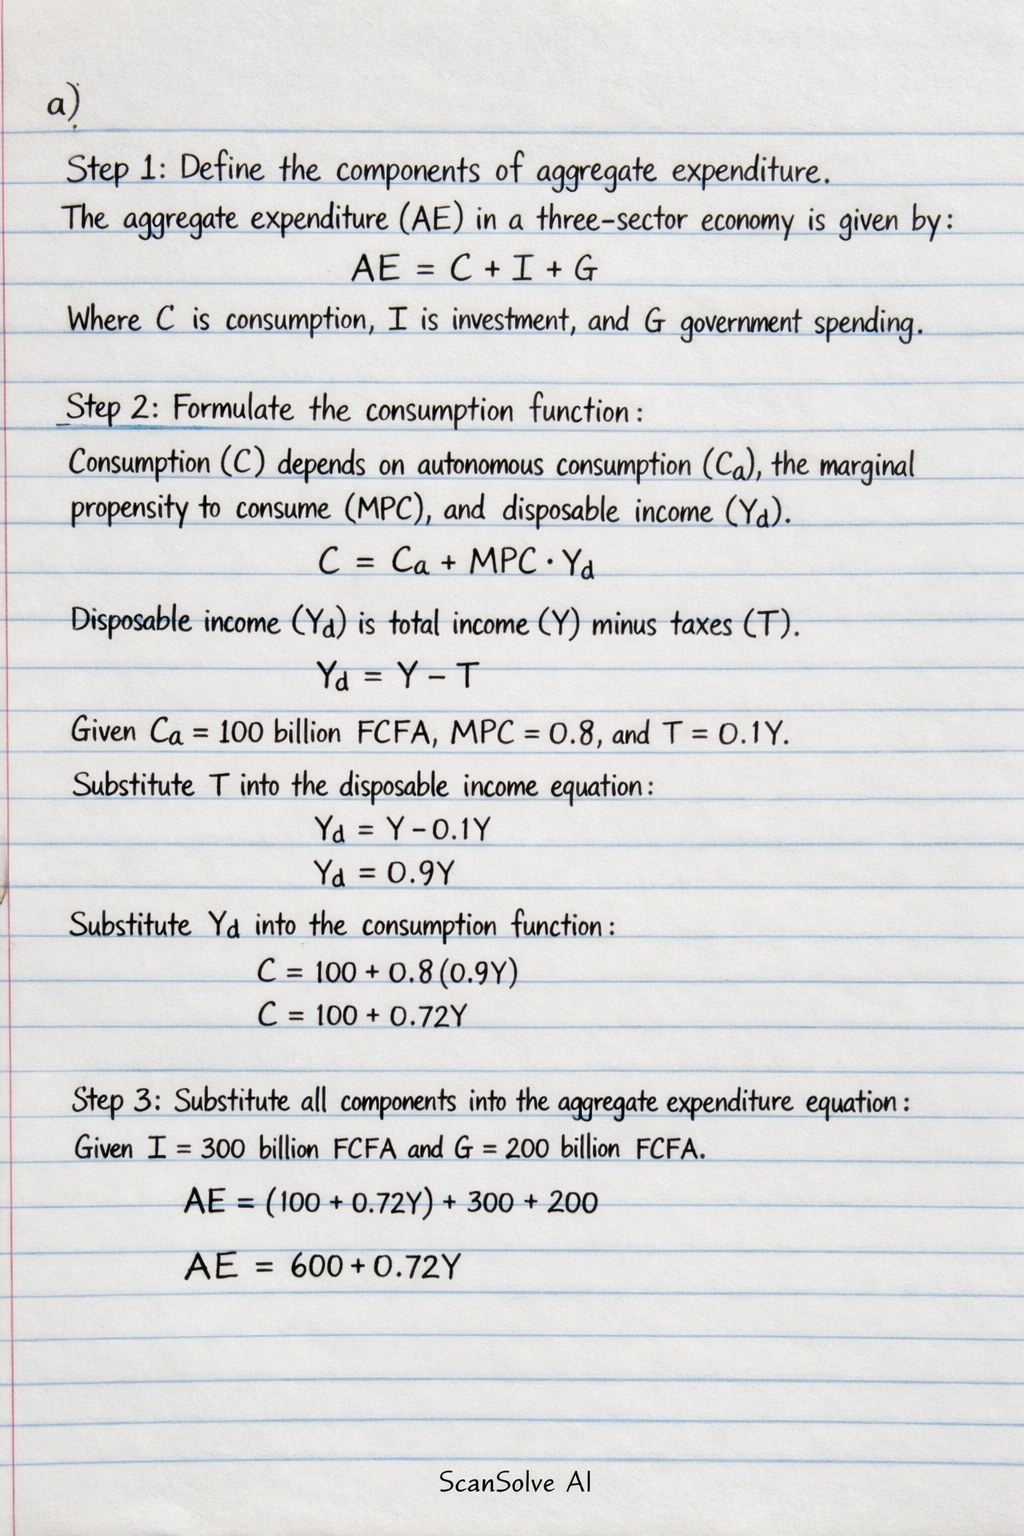 a)
Step 1: Define the components of aggregate expenditure.
The aggregate expenditure (AE) in a three-sector economy is given by:
AE = C + I + G
Where C is consumption, I is investment, and G government spending.
Step 2: Formulate the consumption function:
Consumption (C) depends on autonomous consumption (Ca), the marginal
propensity to consume (MPC), and disposable income (Yd).
C = Ca + MPC · Yd
Disposable income (Yd) is total income (Y) minus taxes (T).
Yd = Y – T
Given Ca = 100 billion FCFA, MPC = 0.8, and T = 0.1Y.
Substitute T into the disposable income equation:
Yd = Y – 0.1Y
Yd = 0.9Y
Substitute Yd into the consumption function:
C = 100 + 0.8 (0.9Y)
C = 100 + 0.72Y
Step 3: Substitute all components into the aggregate expenditure equation:
Given I = 300 billion FCFA and G = 200 billion FCFA.
AE = (100 + 0.72Y) + 300 + 200
AE = 600 + 0.72Y
ScanSolve AI